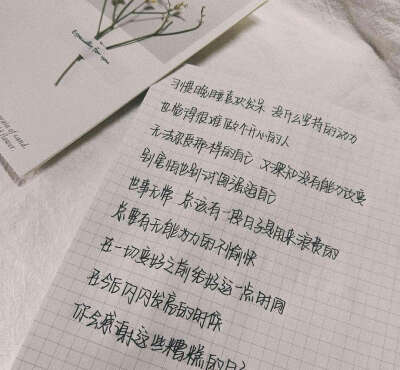 Especially for you
习惯晚睡喜欢发呆 没什么坚持的动力
也觉得很难做个开心的人
无法忍受那样的自己 又深知没有能力改变
别害怕也别讨厌深渊自己
世事无常 总该有一段日子是用来浪费的
总要有无能为力的不愉快
在一切变好之前给好运一点时间
在今后闪闪发亮的时候
你会感谢这些糟糕的日子